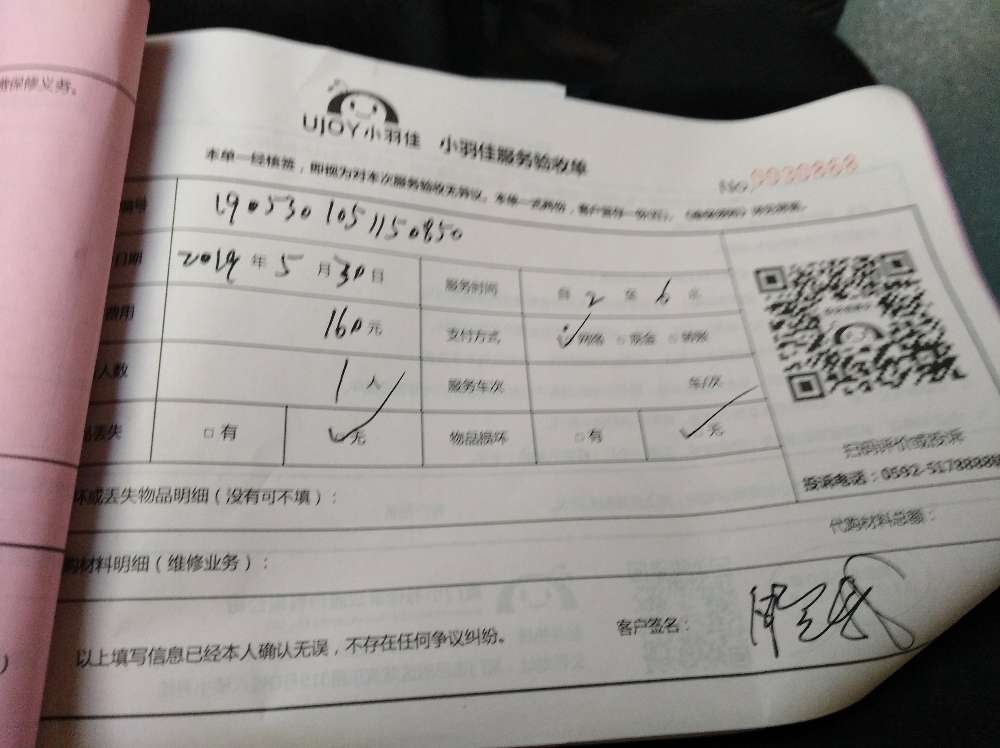 保修义务。
UJOY小羽佳 小羽佳服务验收单
No 0030868
本单一经核签，即视为对本次服务验收无异议。本单一式两份，客户留存一份
编号 1905301051150850
日期 2019年5月30日 服务时间 自 2 至 6 止
费用 160元 支付方式 网络 现金 转账
人数 1人 服务车次 车/次
丢失 有 无 物品损坏 有 无
扫码评价或投诉
投诉电话：0592-5178888
坏或丢失物品明细（没有可不填）：
材料明细（维修业务）： 代购材料总额：
以上填写信息已经本人确认无误，不存在任何争议纠纷。 客户签名：